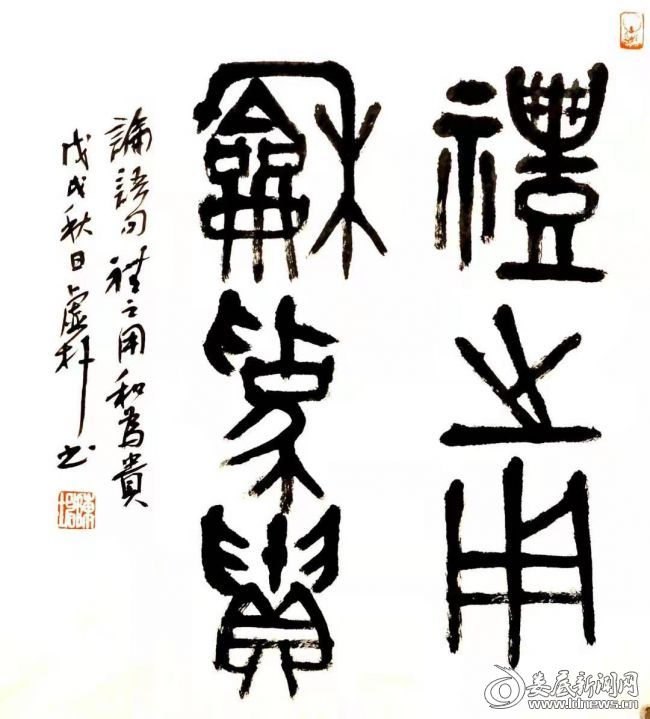 禮之用
龢為貴
論語句禮之用和為貴
戊戌秋日虛朴书
娄底新闻网
www.ldnews.cn